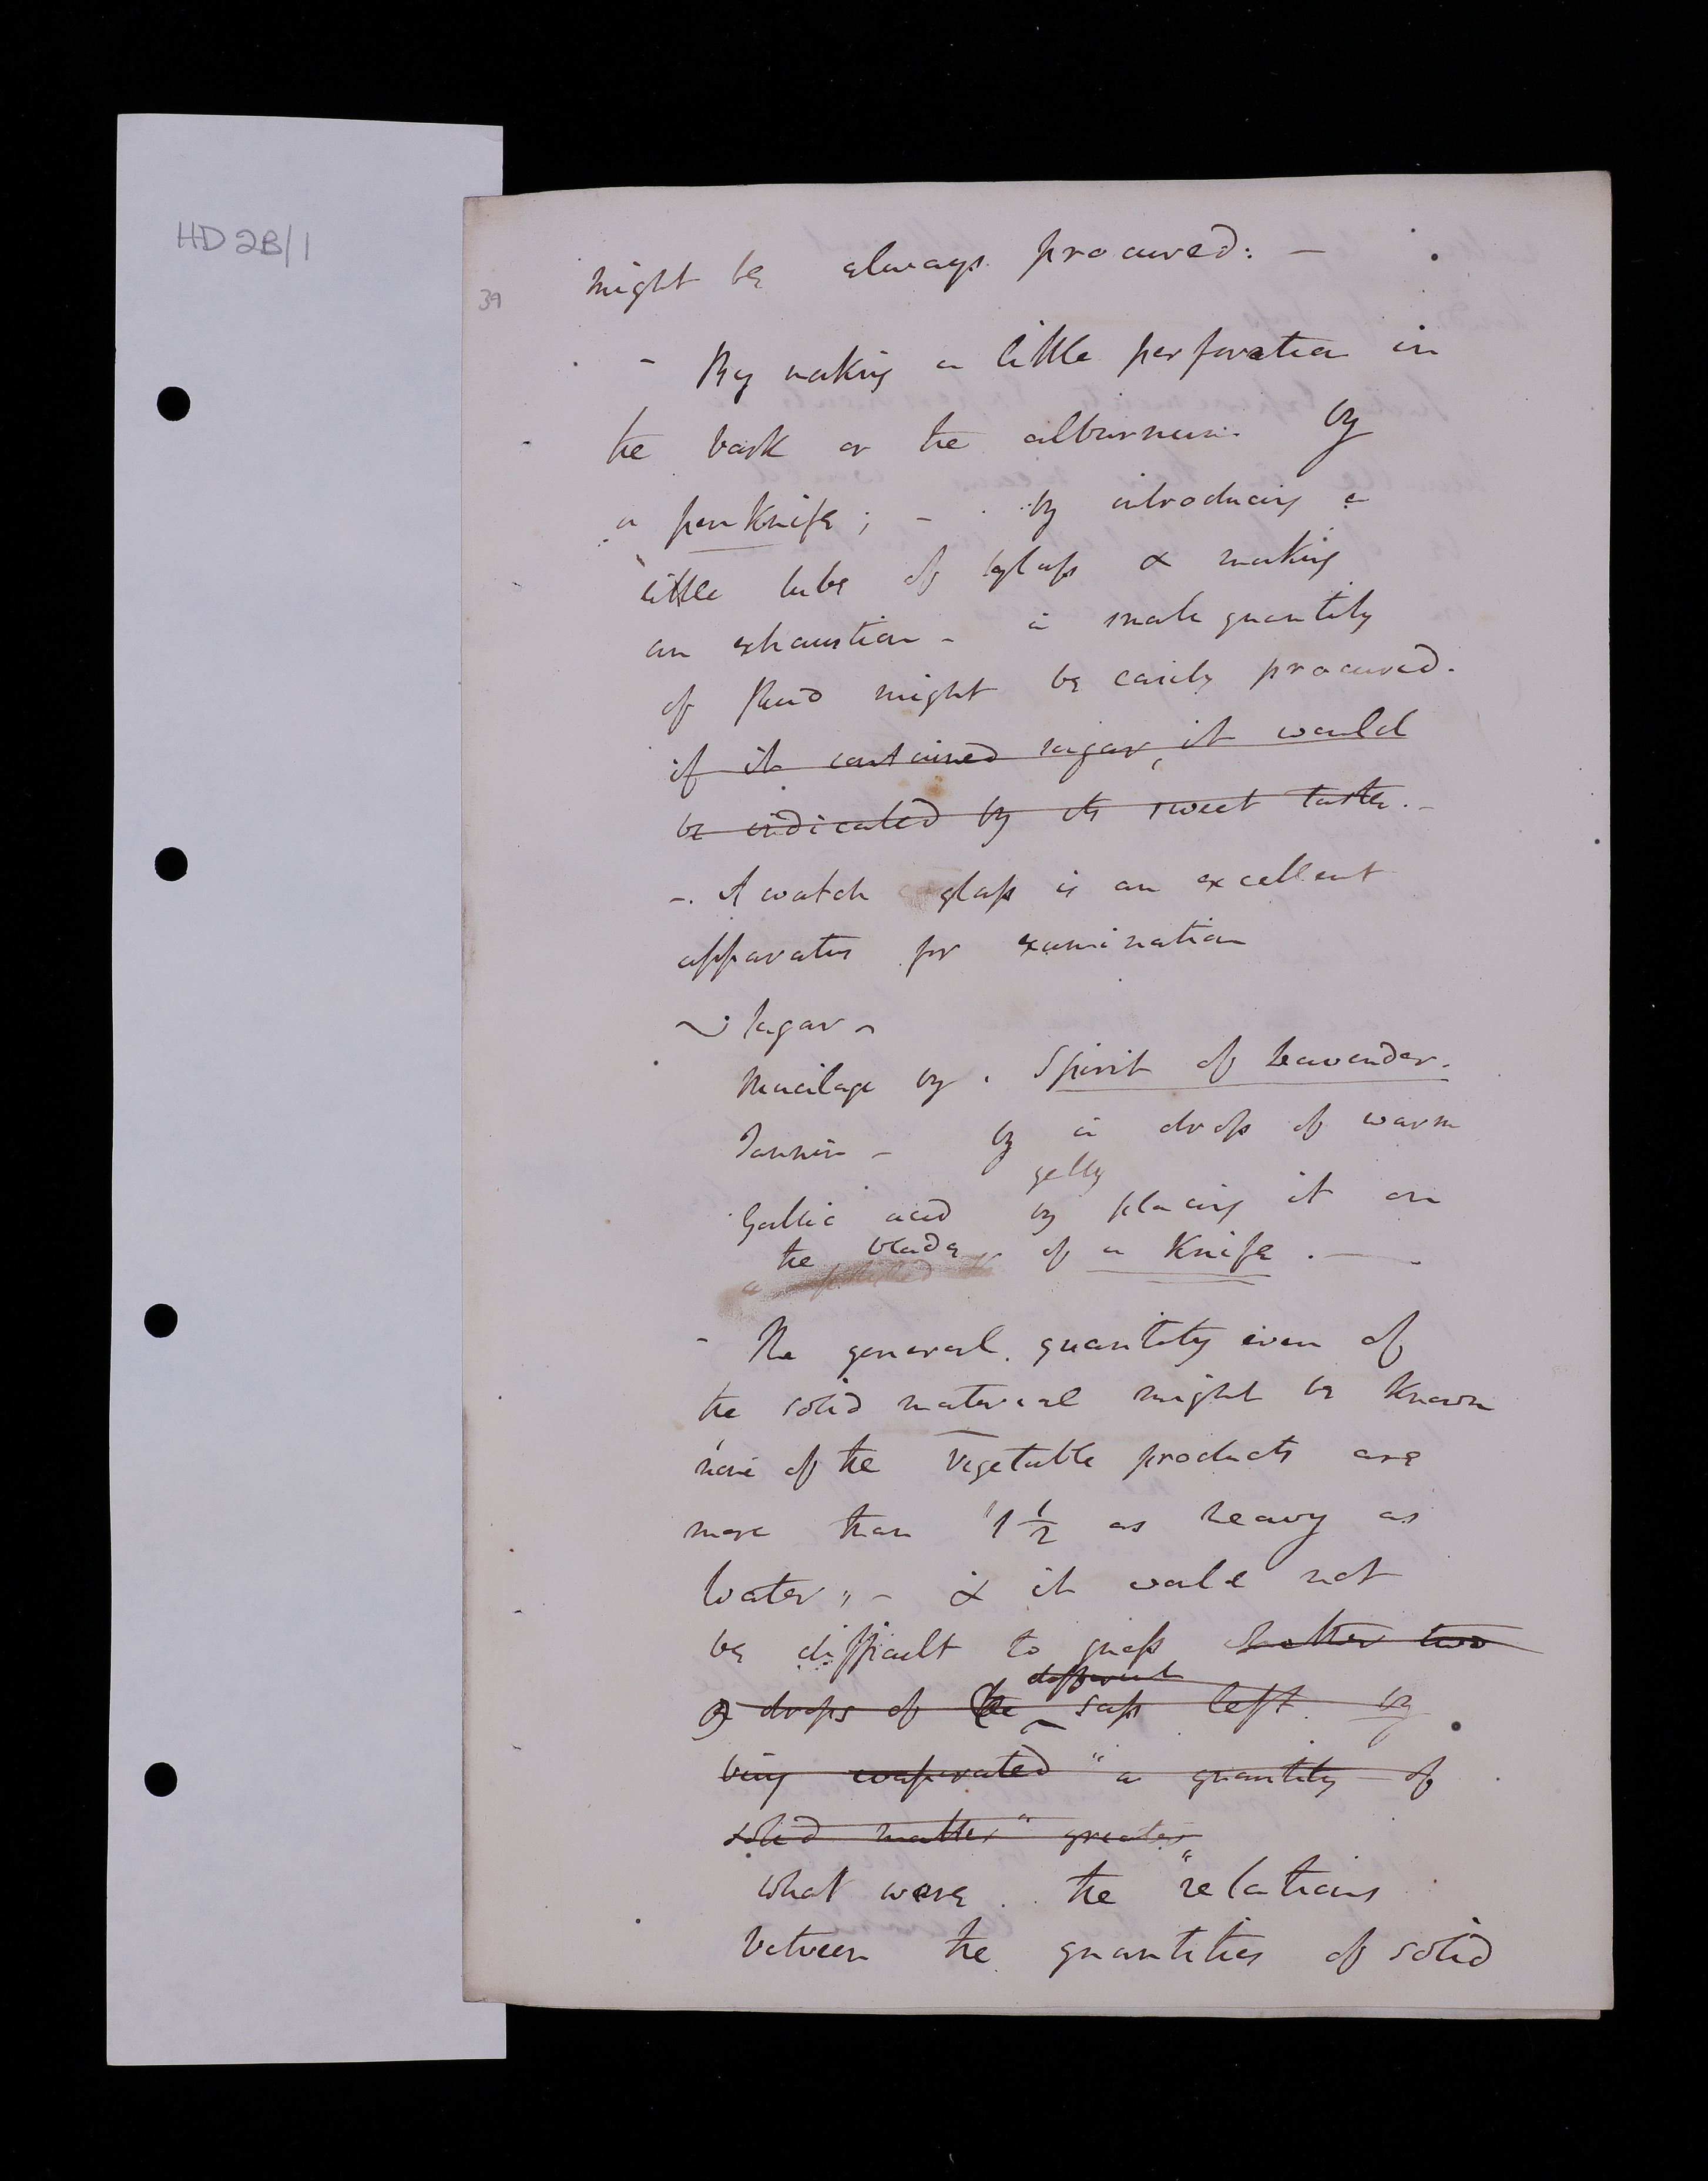 HD 2B/1
39
might be always procured: —
- By making a little perforation in
the bark or the alburnum by
a penknife; - by introducing a
little tube of glass & making
an exhaustion - a small quantity
of fluid might be easily procured.
if it contained sugar, it would
be indicated by its sweet taste. -
-. A watch glass is an excellent
apparatus for examination
Sugar -
Mucilage by . Spirit of Lavender.
Tannin - by a drop of warm
gelly
Gallic acid by placing it on
the blade of a Knife. —
a polished
- The general quantity even of
the solid material might be known
none of the vegetable products are
more than 1 1/2 as heavy as
water; - & it would not
be difficult to guess whether two
drops of the different sap left by
being evaporated "a quantity of
solid matter" greater
what were the "relations
between the quantities of solid